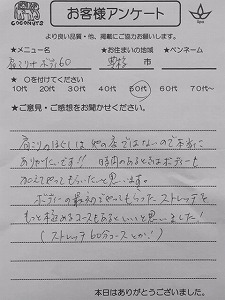 COCONUTS
お客様アンケート
Spa
より良い品質・他、掲載にご協力お願いします。
★メニュー名 ★お住まいの地域 ★ペンネーム
肩こりナ ボディ60 市
★ ○を付けてください
10代 20代 30代 40代 50代 60代 70代〜
★ご意見・ご感想をお聞かせください。
肩こりのほぐしは他の店ではないので本当に
ありがたいです!! 時間のあるときはボディーも
加えてやってもらいたいと思います。
ボディーの最初でやってもらったストレッチを
もっと極めるコースもあるといいと思いました!
(ストレッチ60分コースとか!)
本日はありがとうございました。